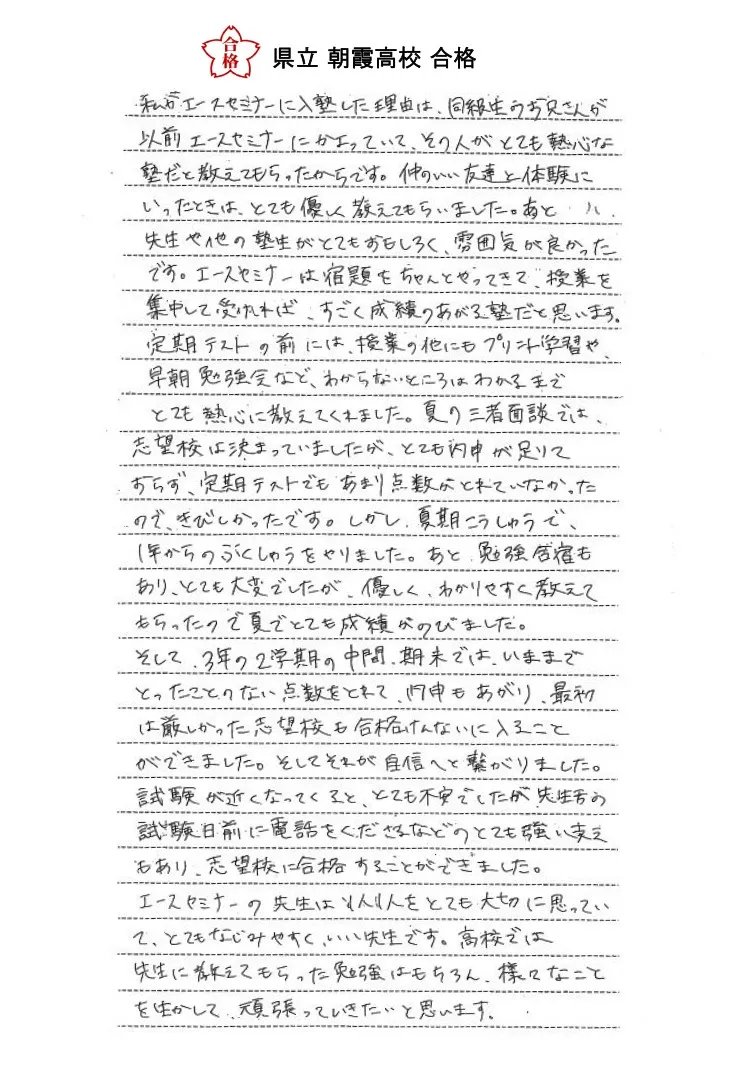 合格
県立 朝霞高校 合格
私がエースセミナーに入塾した理由は、同級生のお兄さんが
以前エースセミナーにかよっていて、その人がとても熱心な
塾だと教えてもらったからです。仲のいい友達と体験に
いったときは、とても優しく教えてもらいました。あと
先生や他の塾生がとてもおもしろく、雰囲気が良かった
です。エースセミナーは宿題をちゃんとやってきて、授業を
集中して受ければ、すごく成績のあがる塾だと思います。
定期テストの前には、授業の他にもプリント学習や、
早朝勉強会など、わからないところはわかるまで
とても熱心に教えてくれました。夏の三者面談では、
志望校は決まっていましたが、とても内申が足りて
おらず、定期テストでもあまり点数がとれていなかった
ので、きびしかったです。しかし、夏期こうしゅうで、
1年からのふくしゅうをやりました。あと、勉強合宿も
あり、とても大変でしたが、優しく、わかりやすく教えて
もらったので夏でとても成績がのびました。
そして、3年の2学期の中間、期末では、いままで
とったことのない点数をとれて、内申もあがり、最初
は厳しかった志望校も合格けんないに入ること
ができました。そしてそれが自信へと繋がりました。
試験が近くなってくると、とても不安でしたが、先生方の
試験日前に電話をくださるなどのとても強い支え
もあり、志望校に合格することができました。
エースセミナーの先生は1人1人をとても大切に思ってい
て、とてもなじみやすく、いい先生です。高校では
先生に教えてもらった勉強はもちろん、様々なこと
を生かして、頑張っていきたいと思います。